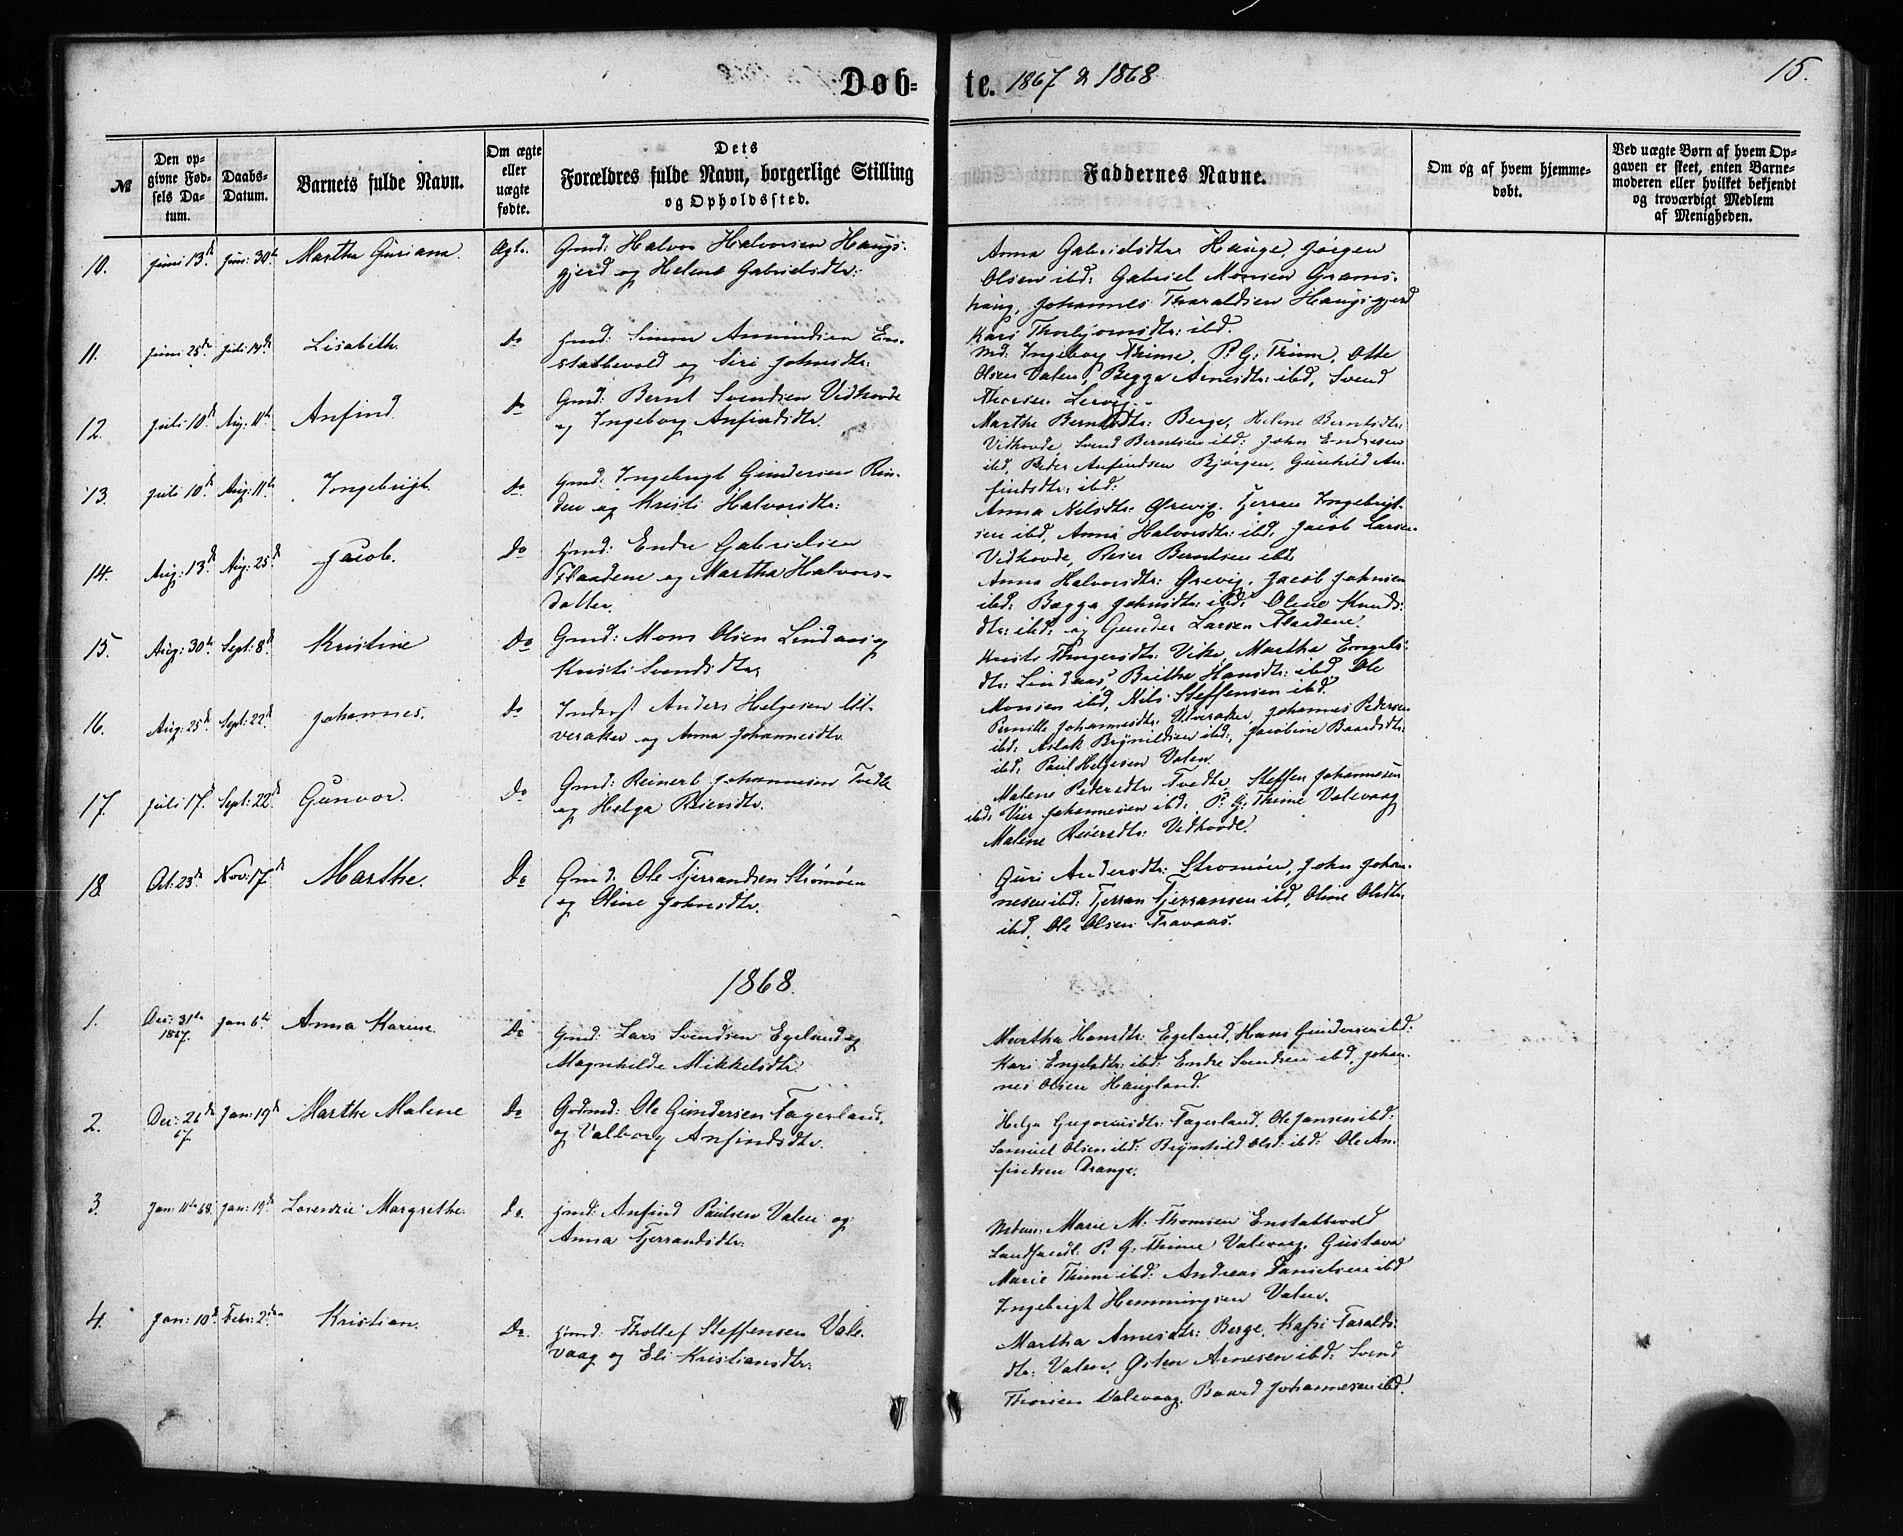 Døb=
te. 1867 & 1868
15.
№
Den op-
givne Fød-
sels Da-
tum.
Daabs-
Datum.
Barnets fulde Navn.
Om ægte
eller
uægte
fødte.
Dets
Forældres fulde Navn, borgerlige Stilling
og Opholdssted.
Faddernes Navne.
Om og af hvem hjemme-
døbt.
Ved uægte Børn af hvem Op-
gaven er skeet, enten Barne-
moderen eller hvilket bekjendt
og troværdigt Medlem
af Menigheden.
10. Juni 13d. Juni 30te Martha Guriana. Ægte.
Gmd: Halvor Halvorsen Haugs-
gjerd og Helene Gabrielsdtr:
Anna Gabrielsdtr: Hauge, Jørgen
Olsen ibd: Gabriel Monsen Grøns-
haug, Johannes Tharaldsen Haugsgjerd
Kari Thorbjørnsdtr: ibd.
11. Juni 25de Juli 14de Lisabeth. Do
Gmd: Simon Amundsen En-
stabbevold og Siri Johnsdtr:
Md: Ingeborg Thime, P. G. Thime, Otte
Olsen Valen, Begga Arnesdtr: ibd, Svend
Thorsen Lervig.
12. Juli 10d Aug: 11te Anfind. Do
Gmd: Bernt Svendsen Vidhovde
og Ingeborg Anfindsdtr.
Marthe Berntsdtr: Berge, Helene Berntsdtr:
Vidhovde, Svend Berntsen ibd: John Endresen
ibd, Peder Anfindsen Bjørgen, Gunhild An-
findsdtr: ibd:
13. Juli 10d Aug: 11te Ingebrigt. Do
Gmd: Ingebrigt Gundersen Rin-
den og Kristi Halvorsdtr:
Anna Nilsdtr: Ørevig. Tjerran Ingebrigt-
sen ibd, Anna Halvorsdtr: ibd, Jacob Larsen
Vidhovde, Reier Berntsen ibd
14. Aug: 13d. Aug: 25d Jacob. Do
Gmd: Endre Gabrielsen
Flaadene og Martha Halvors-
datter.
Anna Halvorsdtr: Ørevig. Jacob Johnsen
ibd: Begga Johnsdtr: ibd: Oline Knuds:
dtr: ibd: og Gunder Larsen Flaadene.
15. Aug: 30te Sept: 8d Kristine Do
Gmd: Mons Olsen Lindaas og
Kristi Svendsdtr.
Kristi Thngersdtr: Vike, Martha Engels:
dtr: Lindaas, Brithe Hansdtr: ibd. Ole
Monsen ibd, Nils Steffensen ibd.
16. Aug: 25d Sept: 22d Johannes. Do
Inderst Anders Helgesen Ul-
veraker og Anna Johannesdtr.
Pernille Johannesdtr: Ulveraker, Johannes Pedersen
ibd: Aslak Brynildsen ibd:, Jacobine Baardsdtr:
ibd: Paul Helgesen Valen.
17. Juli 17d Sept: 22d Gunvor. Do
Gmd: Reinert Johannesen Tvedte
og Helga Reiersdtr.
Malene Pedersdtr: Tvedte, Steffen Johannesen
ibd: Vier Johannesen ibd: P. G. Thime Valevaag
Malene Reiersdtr: Vidhovde.
18. Oct: 23d. Nov: 17d Marthe. Do
Gmd: Ole Tjerrandsen Strømøen
og Oline Johnsdtr.
Guri Andersdtr: Strømøen, John Johan-
nesen ibd: Tjerran Tjerransen ibd, Oline Olsdtr
ibd, Ole Olsen Fravaas.
1868.
1. Dec: 31te
1867. Jan 6te Anna Karine. Do
Gmd: Lars Svendsen Egeland og
Magnhilde Mikkelsdtr.
Martha Hansdtr: Egeland, Hans Gundersen ibd:
Kari Engelsdtr: ibd: Endre Svendsen ibd, Johan-
nes Olsen Haugland.
2. Dec: 26d
67. Jan: 19d Marthe Malene Do
Godmd: Ole Gundersen Fagerland,
og Valborg Anfindsdtr.
Helga Gregoriusdtr: Fagerland, Ole Jansen ibd:
Samuel Olsen ibd: Brynhild Olsd: ibd: Ole An-
findsen Drange.
3. Jan: 11te 68. Jan: 19d Lorendzie Margrethe. Do.
Gmd: Anfind Paulsen Valen og
Anna Tjerrandsdtr:
Marie M. Thomsen Enstabbevold
Landhandl: P. G. Thime Valevaag. Gustava
Marie Thime ibd: Andreas Danielsen ibd
Ingebrigt Hemmingsen Valen.
4. Jan: 10d Febr: 2den Kristian. Do
Gmd: Thollef Steffensen Vale-
vaag og Eli Kristiansdtr:
Martha Arnesdtr: Berge, Kari Taralds:
dtr: Valen. Østen Arnesen ibd: Svend
Thorsen Valevaag, Baard Johannesen ibd.